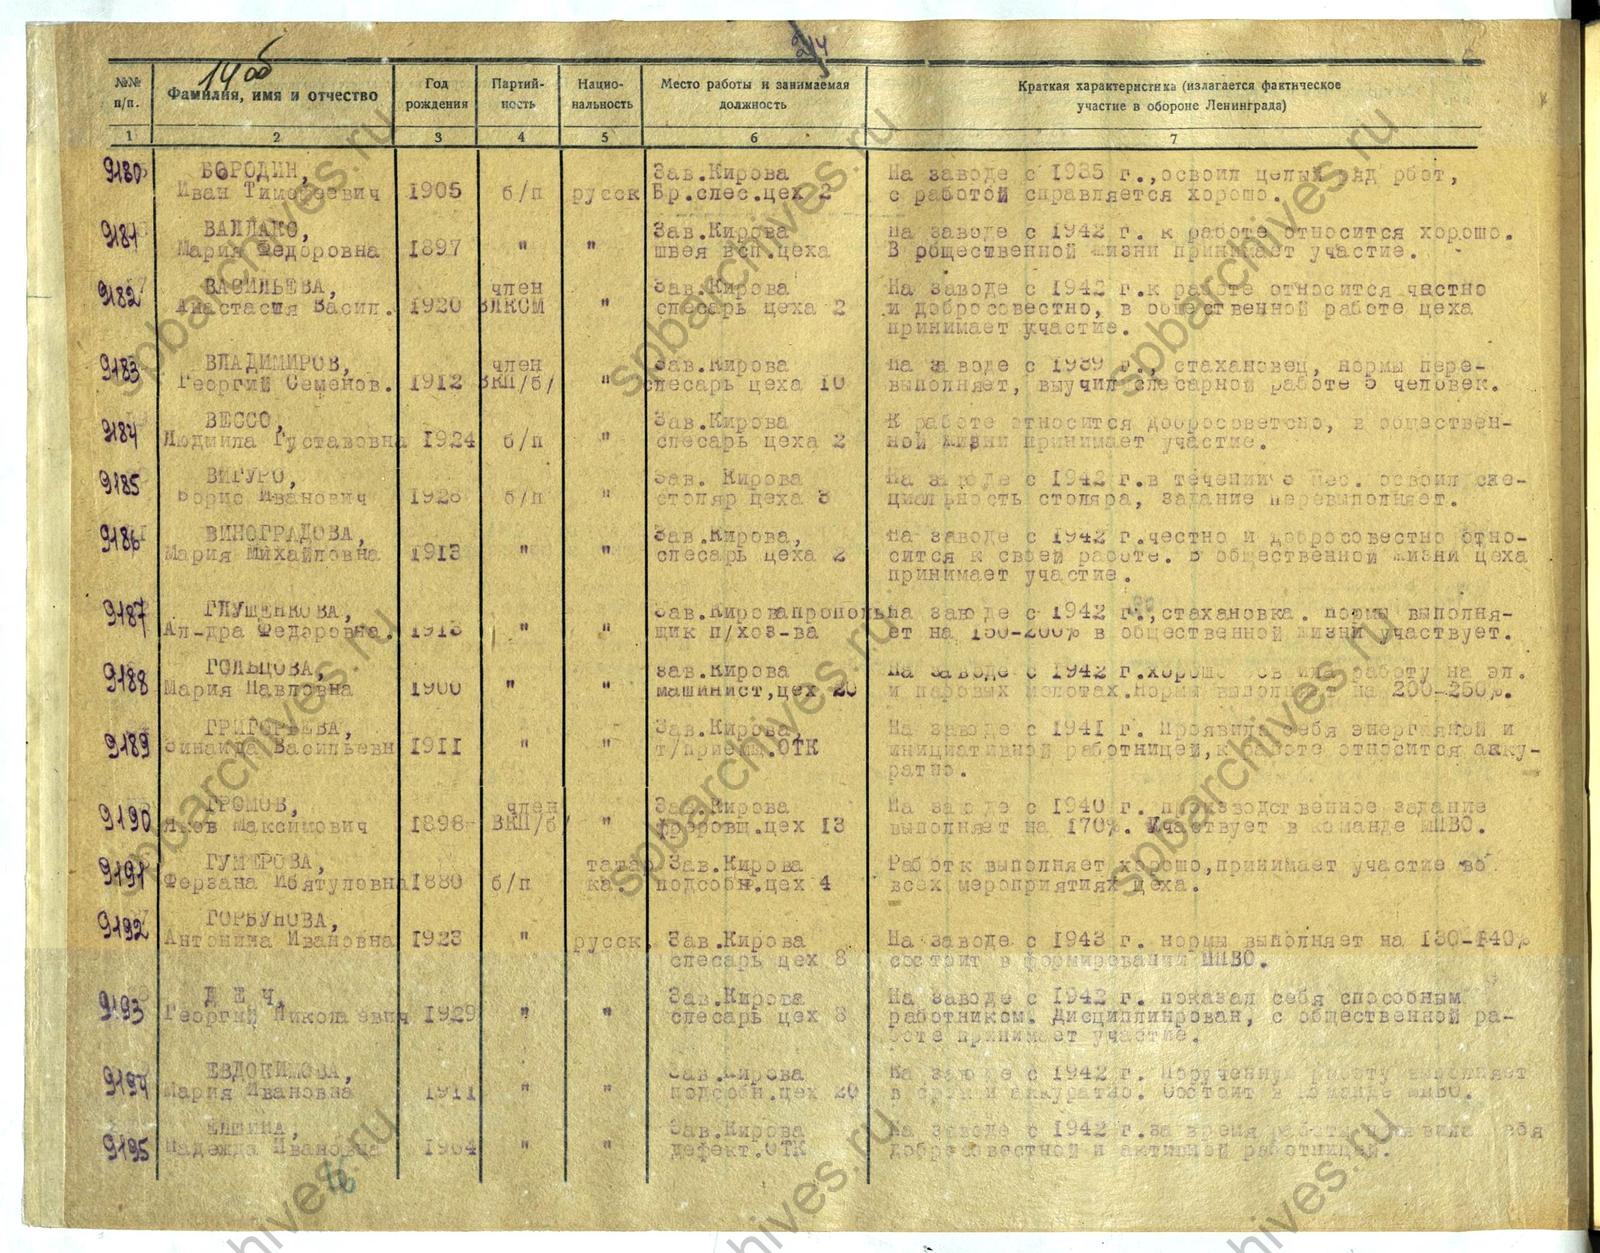 14 об
№№ п/п.
Фамилия, имя и отчество
Год рождения
Партий-ность
Нацио-нальность
Место работы и занимаемая должность
Краткая характеристика (излагается фактическое участие в обороне Ленинграда)
1 2 3 4 5 6 7
9180 БОРОДИН, Зав.Кирова На заводе с 1935 г.,освоил целый ряд рбот,
Иван Тимофеевич 1905 б/п русск Бр.слес.цех 2 с работой справляется хорошо.
9181 ВАЛЛАКО, Зав.Кирова На заводе с 1942 г. к работе относится хорошо.
Мария Федоровна 1897 " " швея всп.цеха В общественной жизни принимает участие.
9182 ВАСИЛЬЕВА, член Зав.Кирова На заводе с 1942 г.к работе относится частно
Анастасия Васил. 1920 ВЛКСМ " слесарь цеха 2 и добросовестно, в общественной работе цеха
принимает участие.
9183 ВЛАДИМИРОВ, член Зав.Кирова На заводе с 1939 г., стахановец, нормы пере-
Георгий Семенов. 1912 ВКП/б/ " слесарь цеха 10 выполняет, выучил слесарной работе 5 человек.
9184 ВЕССО, Зав.Кирова К работе относится добросоветсно, в обществен-
Людмила Густавовна 1924 б/п " слесарь цеха 2 ной жизни принимает участие.
9185 ВИГУРО, Зав. Кирова На заводе с 1942 г.в течении мес. освоил спе-
Борис Иванович б/п " столяр цеха 8 циальность столяра, задание перевыполняет.
9186 ВИНОГРАДОВА, Зав.Кирова, На заводе с 1942 г.честно и добросовестно отно-
Мария Михайловна 1913 " " слесарь цеха 2 сится к своей работе. В общественной жизни цеха
принимает участие.
9187 ГЛУЩЕНКОВА, Зав.Кирова прополь На заводе с 1942 г.,стахановка. Нормы выполня-
Ал-дра Федоровна. 1913 " " щик п/хоз-ва ет на 150-200% в общественной жизни участвует.
9188 ГОЛЬЦОВА, Зав.Кирова На заводе с 1942 г.хорошо освоила работу на эл.
Мария Павловна 1900 " " машинист,цех 20 и паровых молотах.Нормы выполняет на 200-250%.
9189 ГРИГОРЬЕВА, Зав.Кирова, На заводе с 1941 г. Проявила себя энергичной и
Зинаида Васильевн 1911 " " т/приемщ.ОТК инициативной работницей,к работе относится акку-
ратно.
9190 ГРОМОВ, член Зав.Кирова На заводе с 1940 г. производственное задание
Яков Максимович 1898 ВКП/б/ " фрезовщ.цех 13 выполняет на 170%. Участвует в команде МПВО.
9191 ГУМЕРОВА, татар Зав.Кирова Работк выполняет хорошо,принимает участие во
Ферзана Ибятуловна 1880 б/п ка. подсобн.цех 4 всех мероприятиях цеха.
9192 ГОРБУНОВА,
Антонина Ивановна 1923 " русск. Зав.Кирова На заводе с 1943 г. нормы выполняет на 130-140%
слесарь цех 8 состоит в формировании МПВО.
9193 Д Е Ч, Зав.Кирова На заводе с 1942 г. показал себя способным
Георгий Николаевич 1929 " " слесарь цех 8 работником. Дисциплинрован, с общественной ра-
боте принимает участие.
9194 ЕВДОКИМОВА, Зав.Кирова На заводе с 1942 г. Порученную работу выполняет
Мария Ивановна 1911 " " подсобн.цех 20 в срок и аккуратно. Состоит в команде МПВО.
9195 Зав.Кирова На заводе с 1942 г.за время работы проявила себя
Надежда Ивановна 1904 " " дефект.ОТК добросовестной и активной работницей.
spbarchives.ru